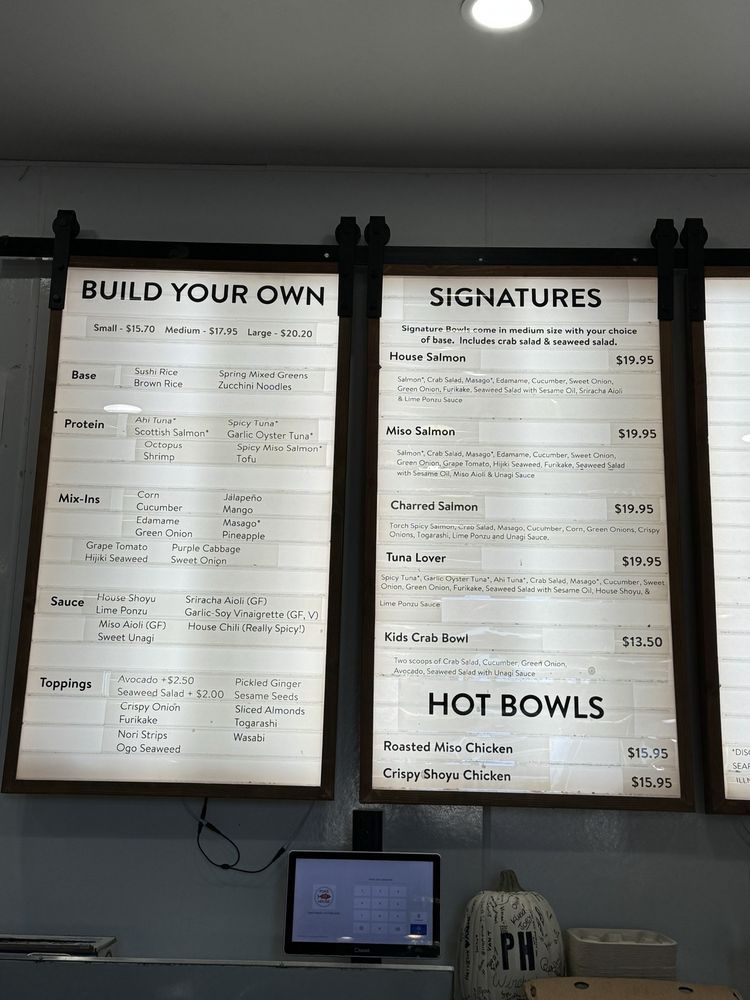 BUILD YOUR OWN
Small - $15.70 Medium - $17.95 Large - $20.20
Base
Sushi Rice Spring Mixed Greens
Brown Rice Zucchini Noodles
Protein
Ahi Tuna* Spicy Tuna*
Scottish Salmon* Garlic Oyster Tuna*
Octopus Spicy Miso Salmon*
Shrimp Tofu
Mix-Ins
Corn Jalapeño
Cucumber Mango
Edamame Masago*
Green Onion Pineapple
Grape Tomato Purple Cabbage
Hijiki Seaweed Sweet Onion
Sauce
House Shoyu Sriracha Aioli (GF)
Lime Ponzu Garlic-Soy Vinaigrette (GF, V)
Miso Aioli (GF) House Chili (Really Spicy!)
Sweet Unagi
Toppings
Avocado +$2.50 Pickled Ginger
Seaweed Salad + $2.00 Sesame Seeds
Crispy Onion Sliced Almonds
Furikake Togarashi
Nori Strips Wasabi
Ogo Seaweed
SIGNATURES
Signature Bowls come in medium size with your choice
of base. Includes crab salad & seaweed salad.
House Salmon $19.95
Salmon*, Crab Salad, Masago*, Edamame, Cucumber, Sweet Onion,
Green Onion, Furikake, Seaweed Salad with Sesame Oil, Sriracha Aioli
& Lime Ponzu Sauce
Miso Salmon $19.95
Salmon*, Crab Salad, Masago*, Edamame, Cucumber, Sweet Onion,
Green Onion, Grape Tomato, Hijiki Seaweed, Furikake, Seaweed Salad
with Sesame Oil, Miso Aioli & Unagi Sauce
Charred Salmon $19.95
Torch Spicy Salmon, Crab Salad, Masago, Cucumber, Corn, Green Onions, Crispy
Onions, Togarashi, Lime Ponzu and Unagi Sauce.
Tuna Lover $19.95
Spicy Tuna*, Garlic Oyster Tuna*, Ahi Tuna*, Crab Salad, Masago*, Cucumber, Sweet
Onion, Green Onion, Furikake, Seaweed Salad with Sesame Oil, House Shoyu, &
Lime Ponzu Sauce
Kids Crab Bowl $13.50
Two scoops of Crab Salad, Cucumber, Green Onion,
Avocado, Seaweed Salad with Unagi Sauce
HOT BOWLS
Roasted Miso Chicken $15.95
Crispy Shoyu Chicken $15.95
PH